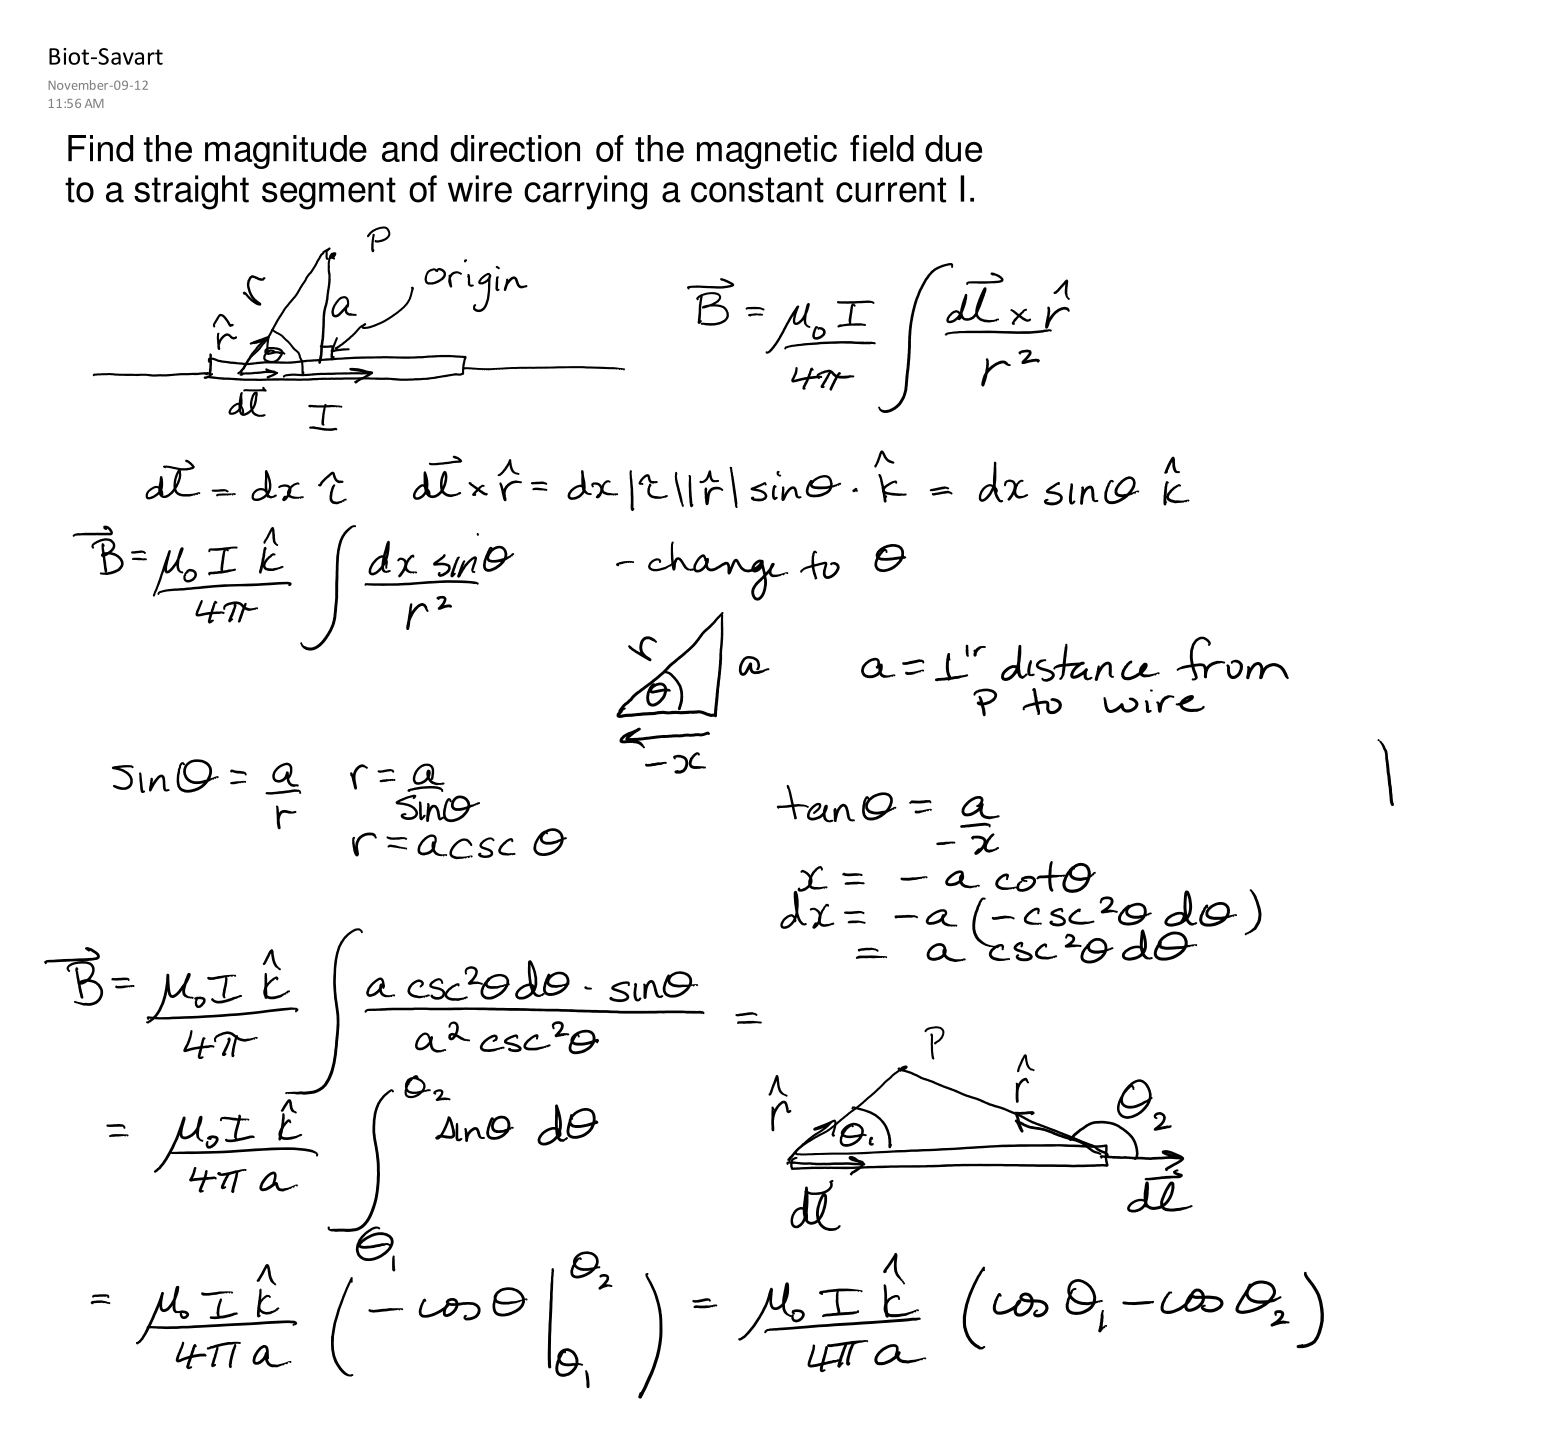 Biot-Savart
November-09-12
11:56 AM
Find the magnitude and direction of the magnetic field due
to a straight segment of wire carrying a constant current I.
P
r
a
origin
r̂
θ
dl⃗
I
B⃗ = μ₀I/4π ∫ dl⃗ × r̂ / r²
dl⃗ = dx î   dl⃗ × r̂ = dx |î||r̂| sinθ · k̂ = dx sinθ k̂
B⃗ = μ₀I k̂/4π ∫ dx sinθ / r²   - change to θ
r
θ
a
-x
a = ⊥'r distance from
P to wire
sinθ = a/r   r = a/sinθ
r = a csc θ
tanθ = a/-x
x = -a cotθ
dx = -a (-csc²θ dθ)
= a csc²θ dθ
B⃗ = μ₀I k̂/4π ∫ a csc²θ dθ · sinθ / a² csc²θ =
= μ₀I k̂/4πa ∫_θ₁^θ₂ sinθ dθ
P
r̂
r̂
θ₁
θ₂
dl⃗
dl⃗
= μ₀I k̂/4πa (-cosθ |_θ₁^θ₂) = μ₀I k̂/4πa (cosθ₁ - cosθ₂)